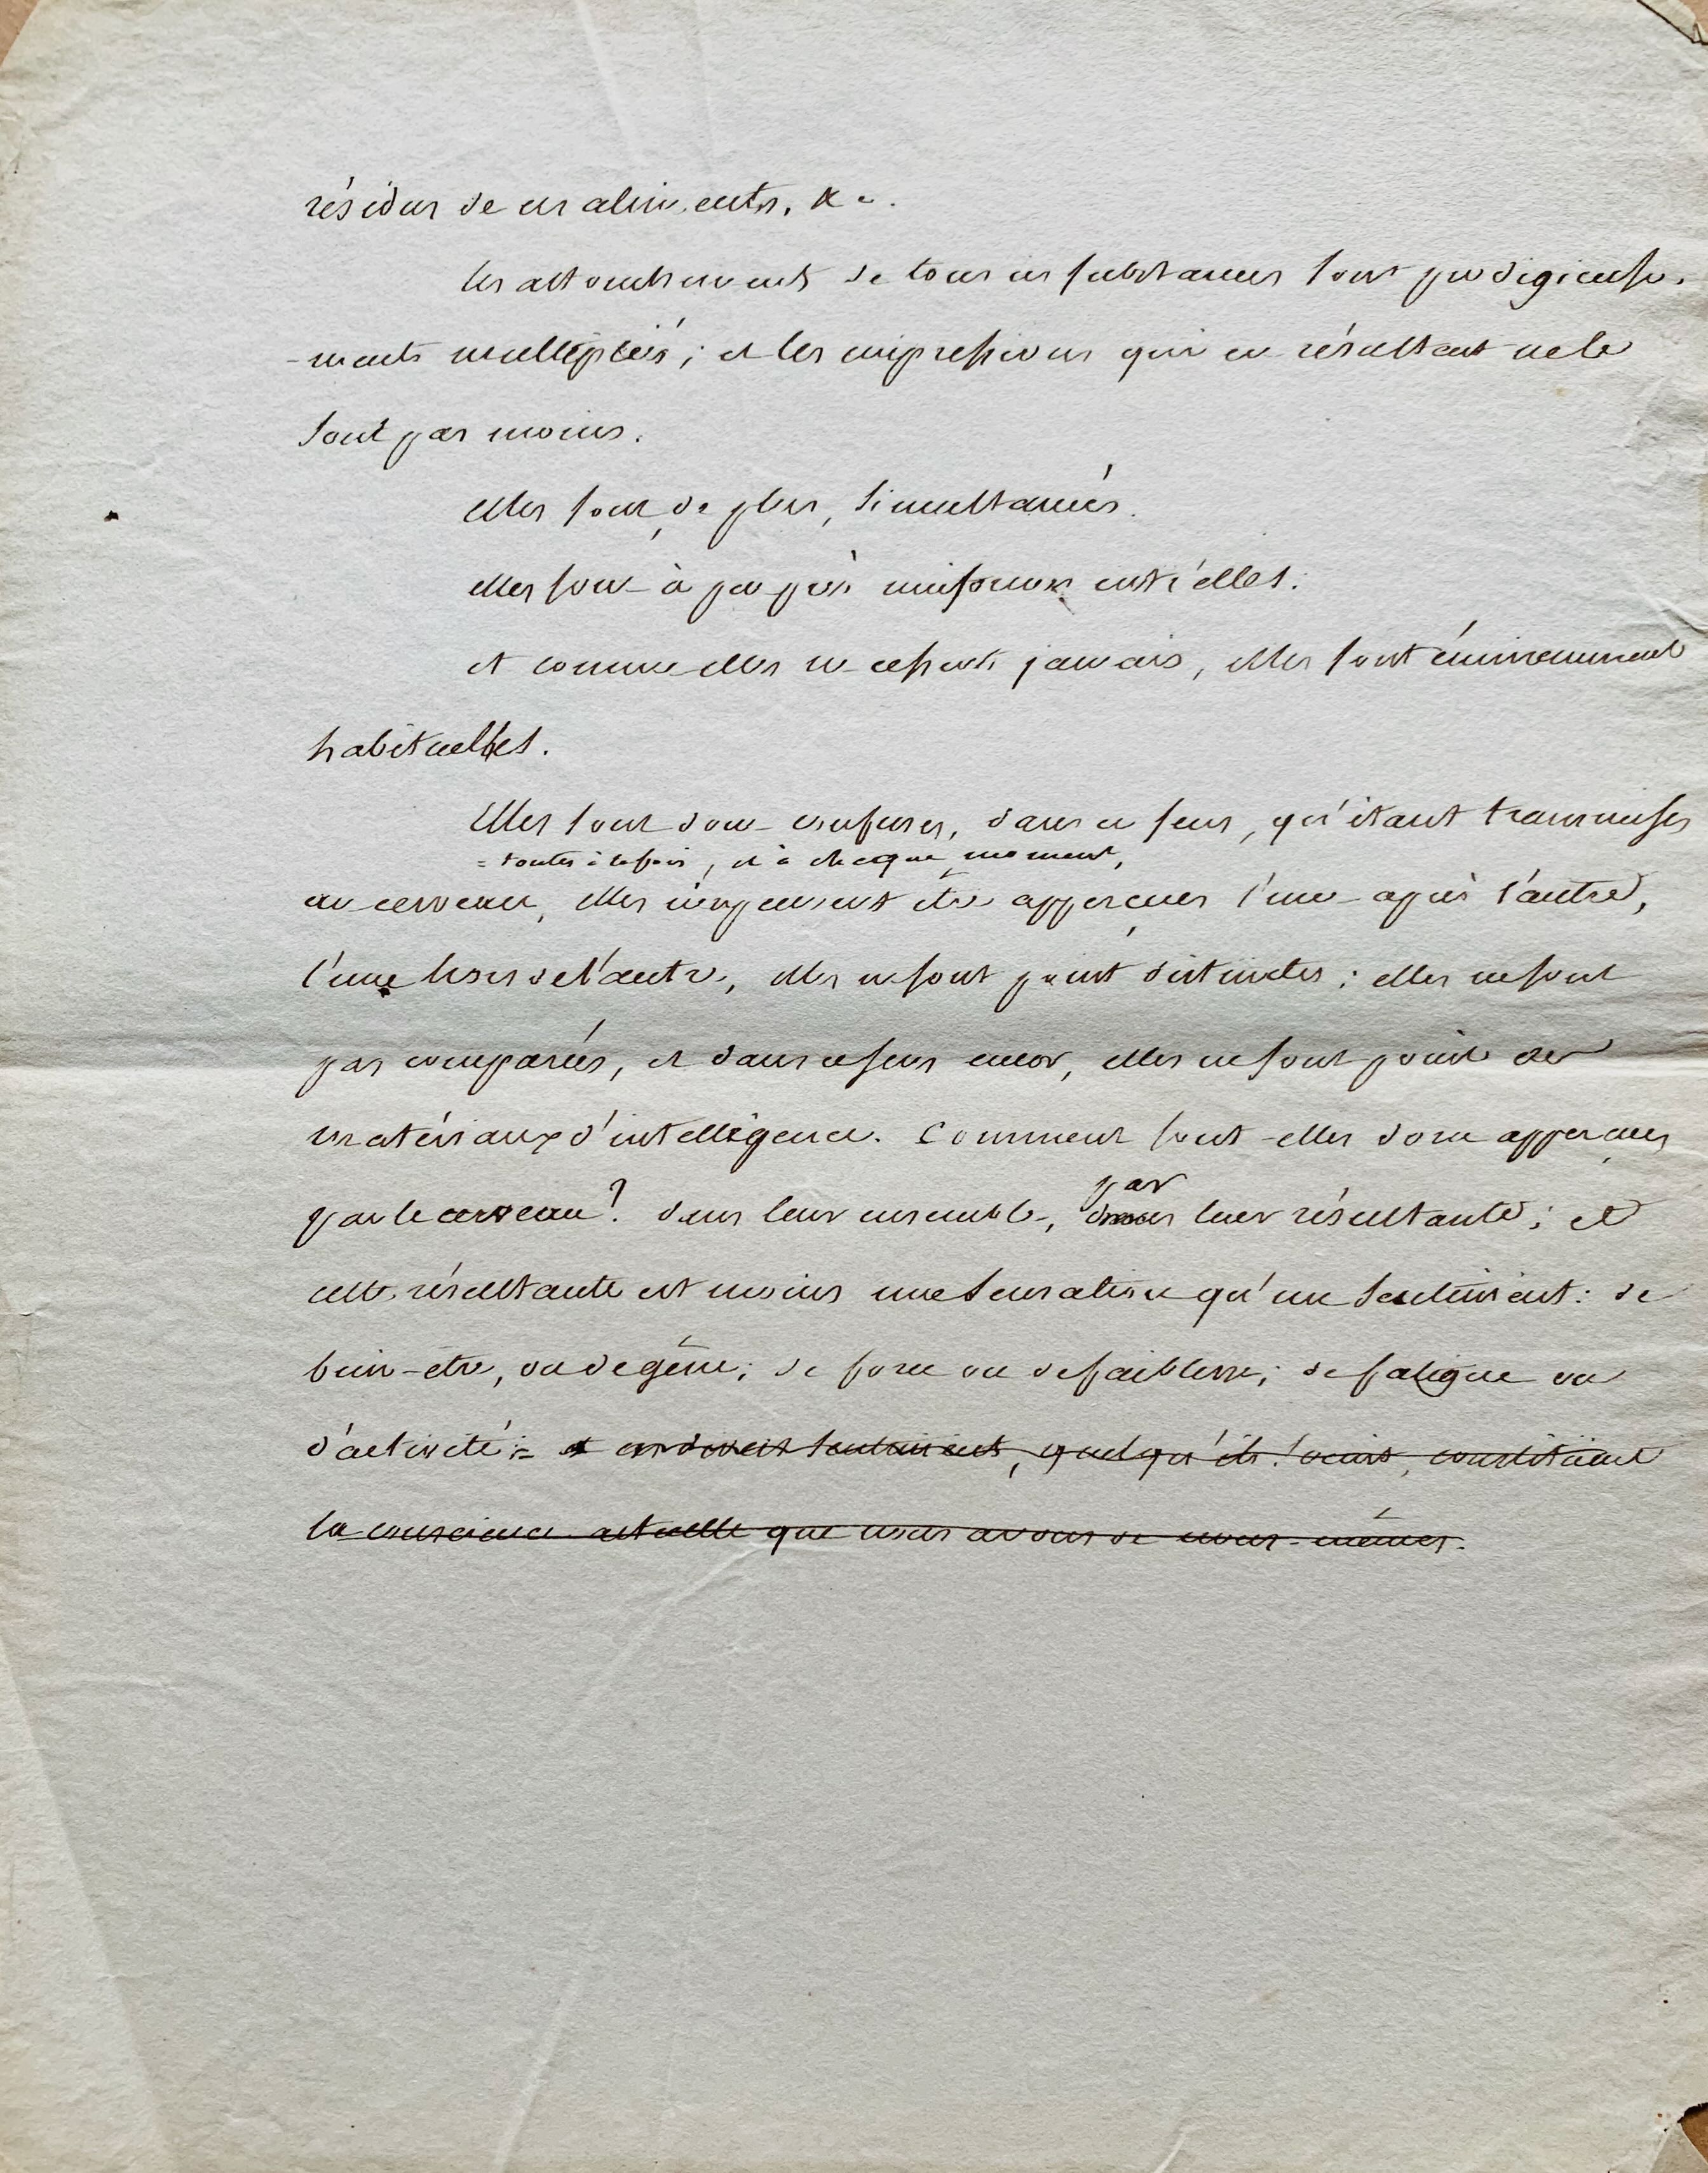 résidus de ces aliments, &c.
les attouchements de tous ces substances sont prodigieuse-
-ments multipliés ; et les impressions qui en résultent ne le
sont pas moins.
elles sont, de plus, simultanées.
elles sont à peu près uniformes entr'elles.
et comme elles ne cessent jamais, elles sont éminemment
habituelles.
Elles sont donc confuses, dans ce sens, qu'étant transmises
= toutes à la fois, et à chaque moment,
au cerveau, elles n'y peuvent être apperçues l'une après l'autre,
l'une hors de l'autre, elles ne sont point distinctes ; elles ne sont
pas comparées, et dans ce sens encor, elles ne sont point des
matériaux d'intelligence. Comment sont-elles donc apperçues
par
par le cerveau ? dans leur ensemble, dans leur résultante ; et
cette résultante est moins une sensation qu'un sentiment : de
bien-etre, ou de gêne ; de force ou de faiblesse ; de fatigue ou
d'activité ; = et ces divers sentiments, quelqu'ils soient, constituent
la conscience actuelle que nous avons de nous-mêmes.